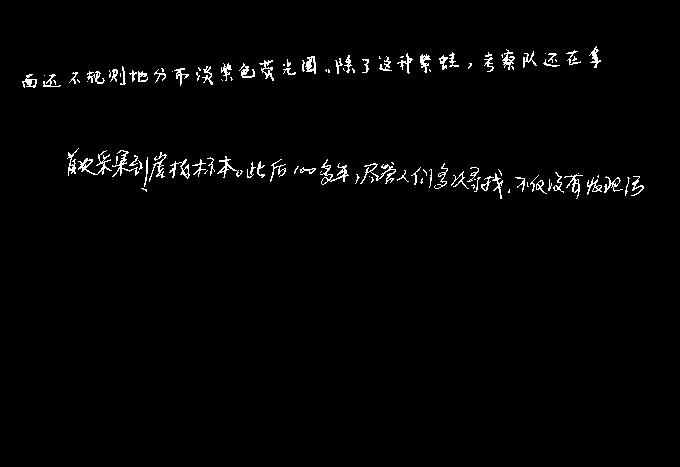 面还不规则地分布淡紫色荧光圈。除了这种紫蛙，考察队还在拿
首次采集到崖柏标本。此后100多年，尽管人们多次寻找，不仅没有发现活